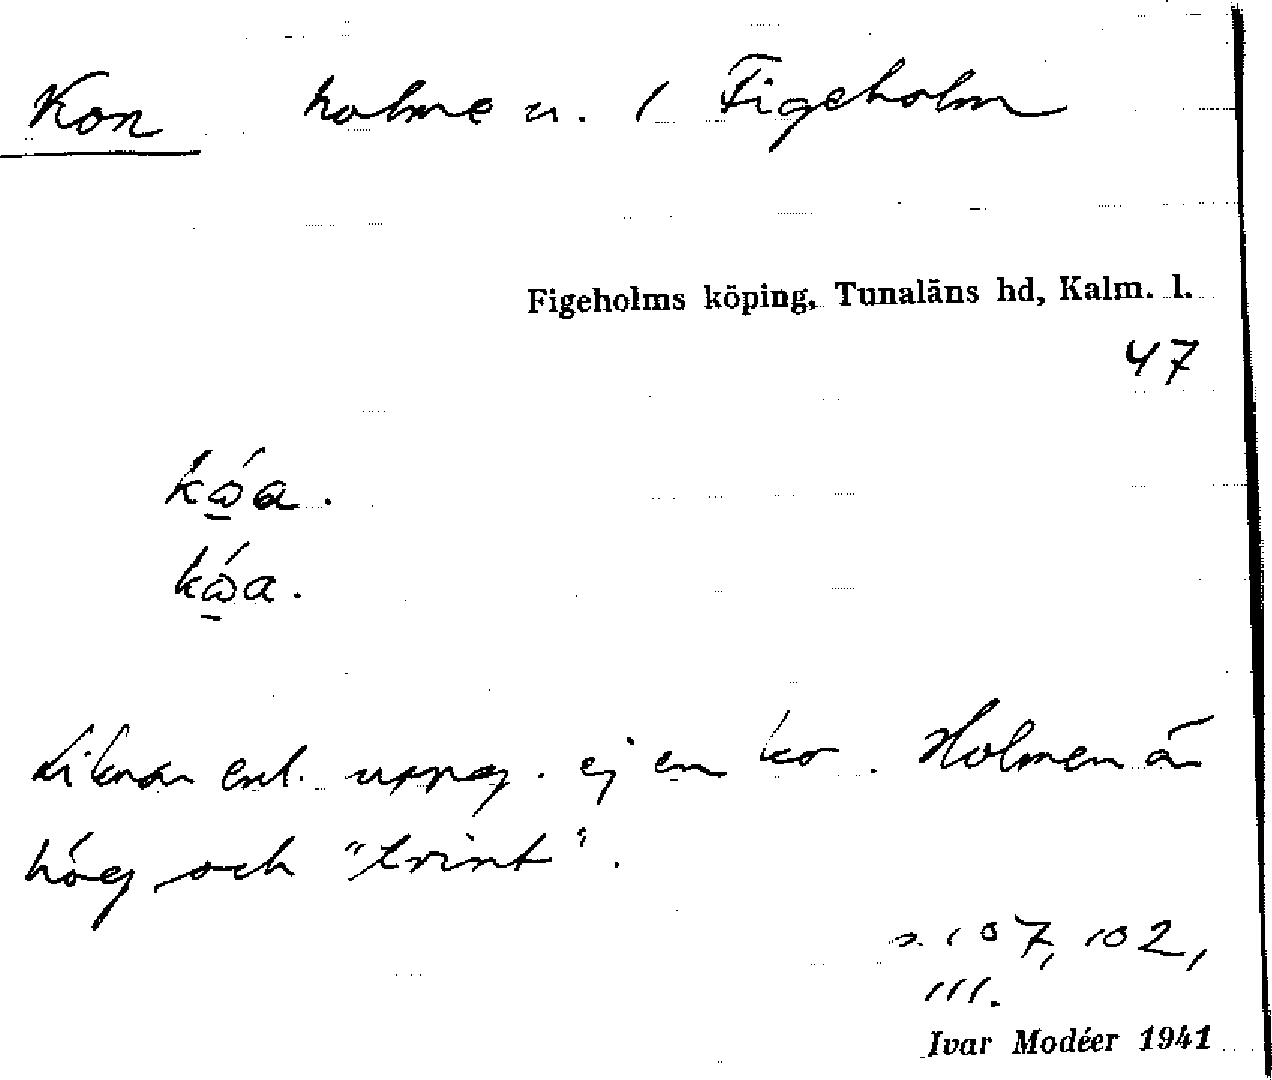 Kon holme n. 1 Figeholm
Figeholms köping, Tunaläns hd, Kalm. l.
47
Liknar enl. uppg. ej en ko. Holmen är
hög och "trint".
s. 107, 102,
111.
Ivar Modéer 1941